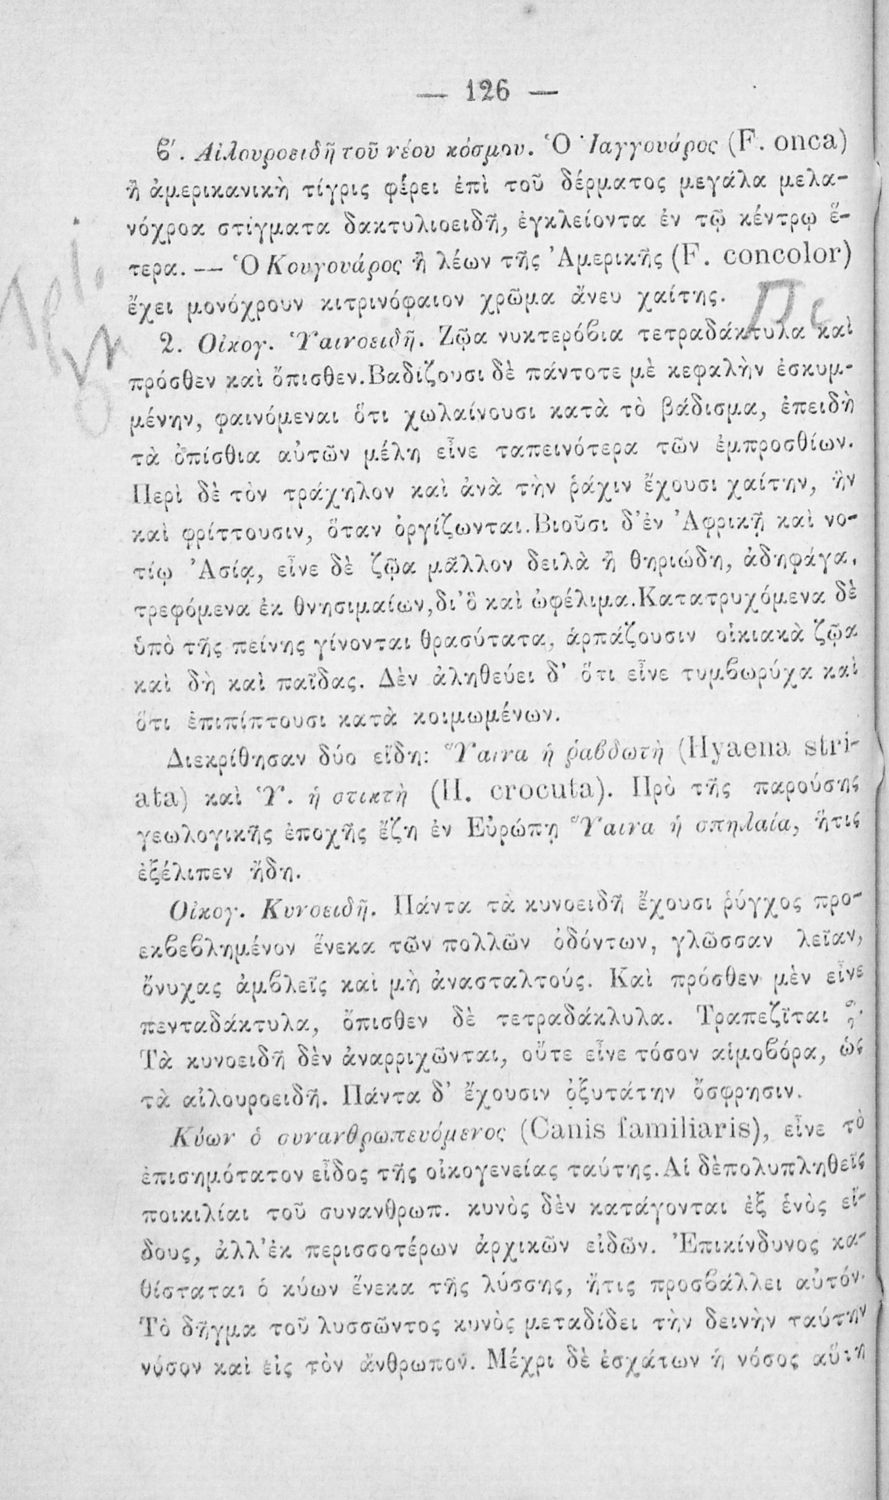 — 126 —
ϐ΄. Αἰλουροειδῆ τοῦ νέου κόσμου. Ὁ Ἰαγγουάρος (F. onca)
ἢ ἀμερικανικὴ τίγρις φέρει ἐπὶ τοῦ δέρματος μεγάλα μελα-
νόχροα στίγματα δακτυλιοειδῆ, ἐγκλείοντα ἐν τῷ κέντρῳ ἕ-
τερα. — Ὁ Κουγουάρος ἢ λέων τῆς Ἀμερικῆς (F. concolor)
ἔχει μονόχρουν κιτρινόφαιον χρῶμα ἄνευ χαίτης.
2. Οἰκογ. Ὑαινοειδῆ. Ζῷα νυκτερόϐια τετραδάκτυλα καὶ
πρόσθεν καὶ ὄπισθεν. Βαδίζουσι δὲ πάντοτε μὲ κεφαλὴν ἐσκυμ-
μένην, φαινόμεναι ὅτι χωλαίνουσι κατὰ τὸ βάδισμα, ἐπειδὴ
τὰ ὀπίσθια αὐτῶν μέλη εἶνε ταπεινότερα τῶν ἐμπροσθίων.
Περὶ δὲ τὸν τράχηλον καὶ ἀνὰ τὴν ῥάχιν ἔχουσι χαίτην, ἣν
καὶ φρίττουσιν, ὅταν ὀργίζωνται. Βιοῦσι δ' ἐν Ἀφρικῇ καὶ νο-
τίῳ Ἀσίᾳ, εἶνε δὲ ζῷα μᾶλλον δειλὰ ἢ θηριώδη, ἀδηφάγα,
τρεφόμενα ἐκ θνησιμαίων, δι' ὃ καὶ ὠφέλιμα. Κατατρυχόμενα δὲ
ὑπὸ τῆς πείνης γίνονται θρασύτατα, ἁρπάζουσιν οἰκιακὰ ζῷα
καὶ δὴ καὶ παῖδας. Δὲν ἀληθεύει δ' ὅτι εἶνε τυμϐωρύχα καὶ
ὅτι ἐπιπίπτουσι κατὰ κοιμωμένων.
Διεκρίθησαν δύο εἴδη: Ὕαινα ἡ ῥαϐδωτὴ (Hyaena stri-
ata) καὶ Ὕ. ἡ στικτὴ (H. crocuta). Πρὸ τῆς παρούσης
γεωλογικῆς ἐποχῆς ἔζη ἐν Εὐρώπῃ Ὕαινα ἡ σπηλαία, ἥτις
ἐξέλιπεν ἤδη.
Οἰκογ. Κυνοειδῆ. Πάντα τὰ κυνοειδῆ ἔχουσι ῥύγχος προ-
εκϐεϐλημένον ἕνεκα τῶν πολλῶν ὀδόντων, γλῶσσαν λεῖαν,
ὄνυχας ἀμϐλεῖς καὶ μὴ ἀνασταλτούς. Καὶ πρόσθεν μὲν εἶνε
πενταδάκτυλα, ὄπισθεν δὲ τετραδάκλυλα. Τραπεζῖται
Τὰ κυνοειδῆ δὲν ἀναρριχῶνται, οὔτε εἶνε τόσον αἱμοϐόρα, ὡς
τὰ αἰλουροειδῆ. Πάντα δ' ἔχουσιν ὀξυτάτην ὄσφρησιν.
Κύων ὁ συνανθρωπευόμενος (Canis familiaris), εἶνε τὸ
ἐπισημότατον εἶδος τῆς οἰκογενείας ταύτης. Αἱ δὲ πολυπληθεῖς
ποικιλίαι τοῦ συνανθρωπ. κυνὸς δὲν κατάγονται ἐξ ἑνὸς εἴ-
δους, ἀλλ' ἐκ περισσοτέρων ἀρχικῶν εἰδῶν. Ἐπικίνδυνος κα-
θίσταται ὁ κύων ἕνεκα τῆς λύσσης, ἥτις προσϐάλλει αὐτόν.
Τὸ δῆγμα τοῦ λυσσῶντος κυνὸς μεταδίδει τὴν δεινὴν ταύτην
νόσον καὶ εἰς τὸν ἄνθρωπον. Μέχρι δὲ ἐσχάτων ἡ νόσος αὕτη